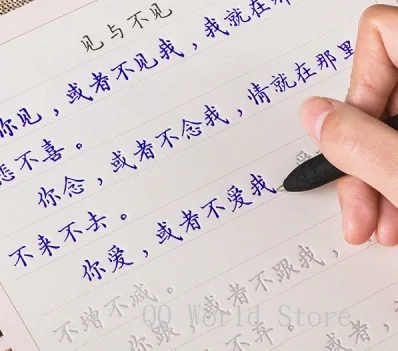 见与不见
你见，或者不见我，我就在那
悲不喜。
你念，或者不念我，情就在那里
不来不去。
你爱，或者不爱我
不增不减。
你跟，或者不跟我，
不弃。
或者，
QQ World Store